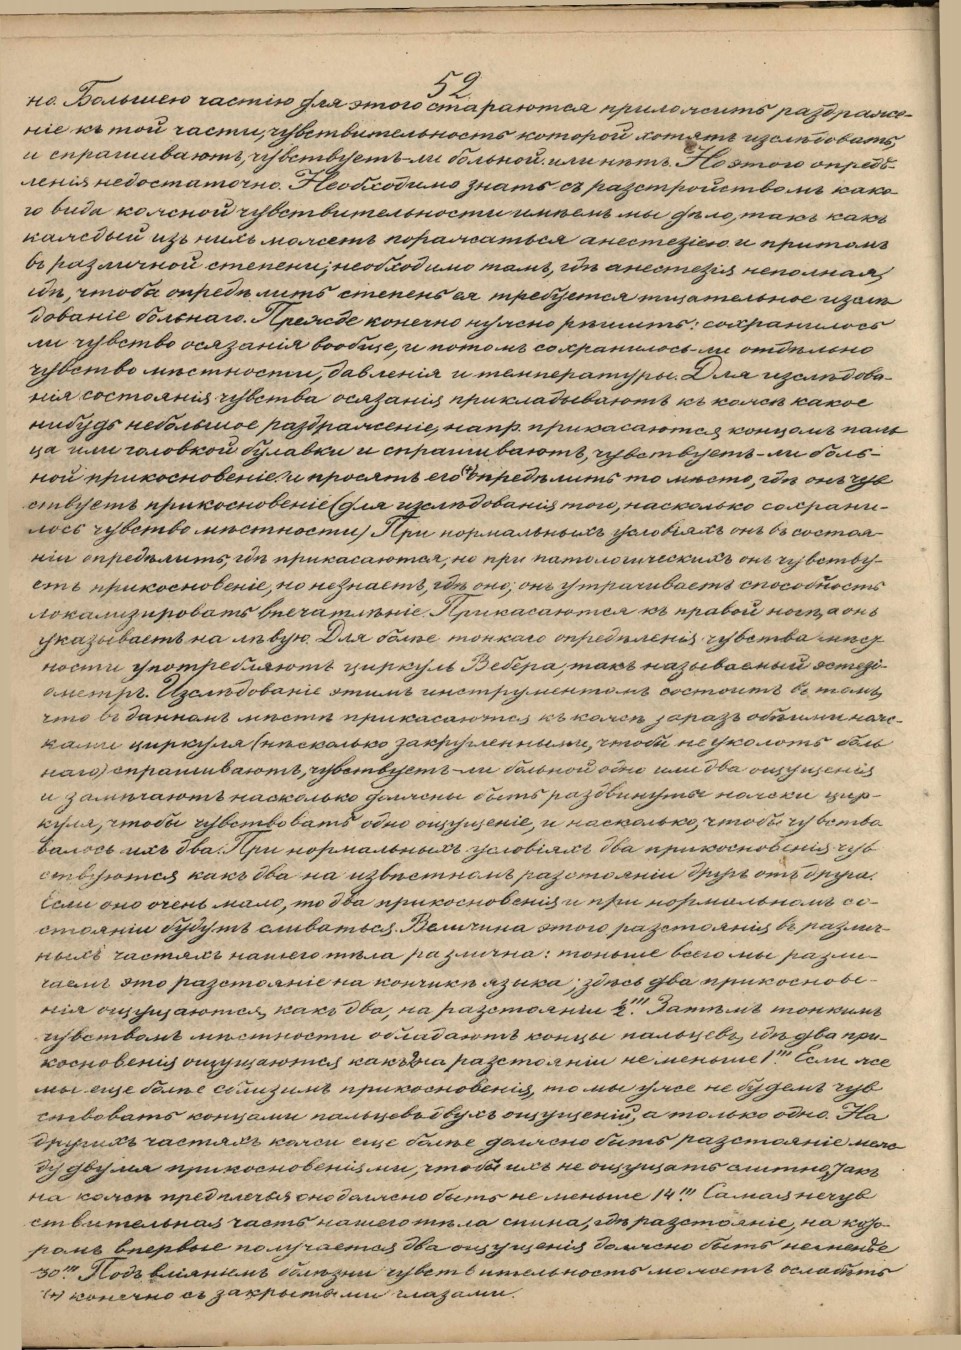 52
но. Большею частію для этого стараются приложить раздраже-
ніе къ той части, чувствительность которой хотятъ изслѣдовать,
и спрашиваютъ, чувствуетъ-ли больной или нѣтъ. Но этого опредѣ-
ленія недостаточно. Необходимо знать съ разстройствомъ како-
го вида кожной чувствительности имѣемъ мы дѣло, такъ какъ
каждый изъ нихъ можетъ поражаться анестезіею и притомъ
въ различной степени; необходимо тамъ, гдѣ анестезія неполная,
гдѣ, чтобы опредѣлить степень ея требуется тщательное изслѣ-
дованіе больнаго. Прежде конечно нужно рѣшить: сохранилось
ли чувство осязанія вообще, и потомъ сохранилось-ли отдѣльно
чувство мѣстности, давленія и температуры. Для изслѣдова-
нія состоянія чувства осязанія прикладываютъ къ кожѣ какое
нибудь небольшое раздраженіе, напр. прикасаются концомъ паль
ца или головкой булавки и спрашиваютъ, чувствуетъ-ли боль-
ной прикосновеніе и просятъ его (+) опредѣлить то мѣсто, гдѣ онъ чув
ствуетъ прикосновеніе (для изслѣдованія того, насколько сохрани-
лось чувство мѣстности) При нормальныхъ условіяхъ онъ въ состоя-
ніи опредѣлить, гдѣ прикасаются, но при патологическихъ онъ чувству-
етъ прикосновеніе, но не знаетъ, гдѣ оно; онъ утрачиваетъ способность
локализировать впечатлѣніе. Прикасаются къ правой ногѣ, а онъ
указываетъ на лѣвую. Для болѣе тонкаго опредѣленія чувства мѣст
ности употребляютъ циркуль Вебера, такъ называемый эстезі-
ометръ. Изслѣдованіе этимъ инструментомъ состоитъ въ томъ,
что въ данномъ мѣстѣ прикасаются къ кожѣ заразъ обѣими нож-
ками циркуля (нѣсколько закругленными, чтобы не уколоть боль
наго) спрашиваютъ, чувствуетъ-ли больной одно или два ощущенія
и замѣчаютъ насколько должны быть раздвинуты ножки цир-
куля, чтобы чувствовать одно ощущеніе, и насколько, чтобы чувство
валось ихъ два. При нормальныхъ условіяхъ два прикосновенія чув
ствуются какъ два на извѣстномъ разстояніи другъ отъ друга.
Если оно очень мало, то два прикосновенія и при нормальномъ со-
стояніи будутъ сливаться. Величина этого разстоянія въ различ-
ныхъ частяхъ нашего тѣла различна: тоньше всего мы разли-
чаемъ это разстояніе на кончикѣ языка; здѣсь два прикоснове-
нія ощущаются, какъ два, на разстояніи ½'''. Затѣмъ тонкимъ
чувствомъ мѣстности обладаютъ концы пальцевъ, гдѣ два при-
косновенія ощущаются какъ 2 на разстояніи не меньше 1''' Если же
мы еще болѣе сблизимъ прикосновенія, то мы уже не будемъ чув
ствовать концами пальцевъ двухъ ощущеній, а только одно. На
другихъ частяхъ кожи еще болѣе должно быть разстояніе меж
ду двумя прикосновеніями, чтобы ихъ не ощущать слитно, такъ
на кожѣ предплечья оно должно быть не меньше 14''' Самая нечув
ствительная часть нашего тѣла спина, гдѣ разстояніе, на кото-
ромъ впервые получается два ощущенія должно быть не менѣе
30''' Подъ вліяніемъ болѣзни чувствительность можетъ ослабѣть
(+) конечно съ закрытыми глазами.